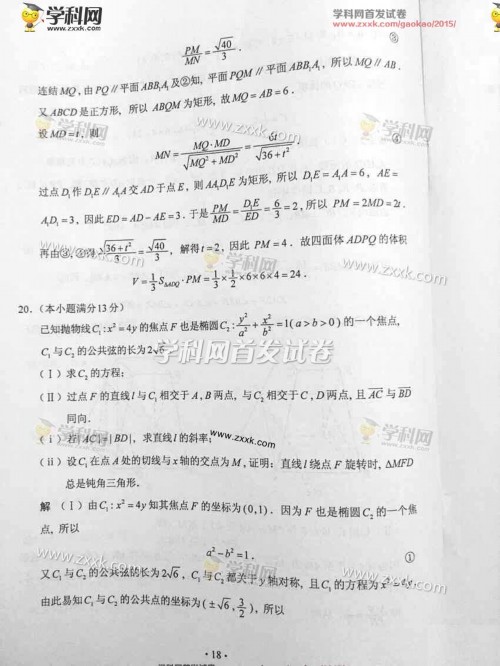 学科网
www.zxxk.com
学科网首发试卷
www.zxxk.com/gaokao/2015/
PM/MN = √40/3 . ③
连结 MQ , 由 PQ // 平面 ABB₁A₁ 及②知, 平面 PQM // 平面 ABB₁A₁ , 所以 MQ // AB .
又 ABCD 是正方形, 所以 ABQM 为矩形, 故 MQ = AB = 6 .
设 MD = t , 则
MN = MQ·MD/√(MQ² + MD²) = 6t/√(36 + t²) . ④
过点 D₁ 作 D₁E // A₁A 交 AD 于点 E , 则 AA₁D₁E 为矩形, 所以 D₁E = A₁A = 6 , AE =
A₁D₁ = 3 , 因此 ED = AD − AE = 3 . 于是 PM/MD = D₁E/ED = 6/3 = 2 , 所以 PM = 2MD = 2t .
再由③,④得 √(36 + t²)/3 = √40/3 , 解得 t = 2 , 因此 PM = 4 . 故四面体 ADPQ 的体积
V = 1/3 S△ADQ · PM = 1/3 × 1/2 × 6 × 6 × 4 = 24 .
20. (本小题满分13分)
已知抛物线 C₁ : x² = 4y 的焦点 F 也是椭圆 C₂ : y²/a² + x²/b² = 1 ( a > b > 0 ) 的一个焦点,
C₁ 与 C₂ 的公共弦的长为 2√6 .
学科网首发试卷
(Ⅰ) 求 C₂ 的方程;
(Ⅱ) 过点 F 的直线 l 与 C₁ 相交于 A , B 两点, 与 C₂ 相交于 C , D 两点, 且 AC 与 BD
同向.
(ⅰ) 若 | AC | = | BD | , 求直线 l 的斜率;
(ⅱ) 设 C₁ 在点 A 处的切线与 x 轴的交点为 M , 证明: 直线 l 绕点 F 旋转时, △MFD
总是钝角三角形.
解 (Ⅰ) 由 C₁ : x² = 4y 知其焦点 F 的坐标为 (0, 1) . 因为 F 也是椭圆 C₂ 的一个焦
点, 所以
a² − b² = 1 , ①
又 C₁ 与 C₂ 的公共弦的长为 2√6 , C₁ 与 C₂ 都关于 y 轴对称, 且 C₁ 的方程为 x² = 4y ,
由此易知 C₁ 与 C₂ 的公共点的坐标为 ( ± √6 , 3/2 ) , 所以
· 18 ·
学科网首发试卷